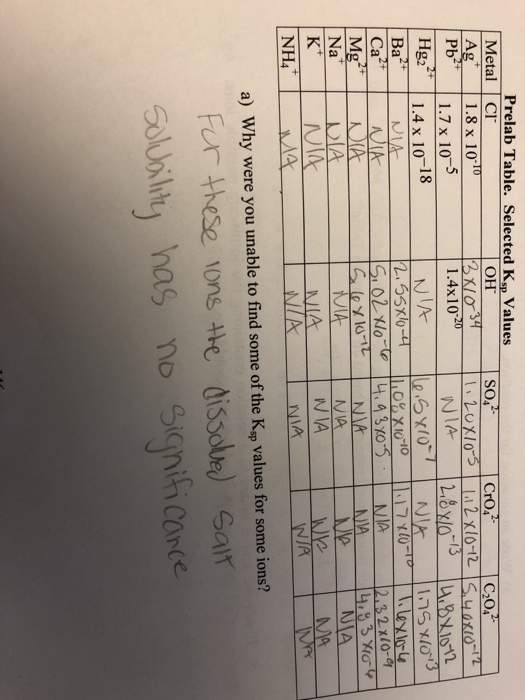 Prelab Table. Selected Ksp Values
Metal Cl⁻ OH⁻ SO₄²⁻ CrO₄²⁻ C₂O₄²⁻
Ag⁺ 1.8 x 10⁻¹⁰ 3x10⁻³⁴ 1.20x10⁻⁵ 1.12x10⁻¹² 5.40x10⁻¹²
Pb²⁺ 1.7 x 10⁻⁵ 1.4x10⁻²⁰ N/A 2.8x10⁻¹³ 4.8x10⁻¹²
Hg₂²⁺ 1.4 x 10⁻¹⁸ N/A 6.5x10⁻⁷ N/A 1.75x10⁻¹³
Ba²⁺ N/A 2.55x10⁻⁴ 1.08x10⁻¹⁰ 1.17x10⁻¹⁰ 1.6x10⁻⁶
Ca²⁺ N/A 5.02x10⁻⁶ 4.93x10⁻⁵ N/A 2.32x10⁻⁹
Mg²⁺ N/A 5.6x10⁻¹² N/A N/A 4.83x10⁻⁶
Na⁺ N/A N/A N/A N/A N/A
K⁺ N/A N/A N/A N/A N/A
NH₄⁺ N/A N/A N/A N/A N/A
a) Why were you unable to find some of the Ksp values for some ions?
For these ions the dissolved salt
solubility has no significance